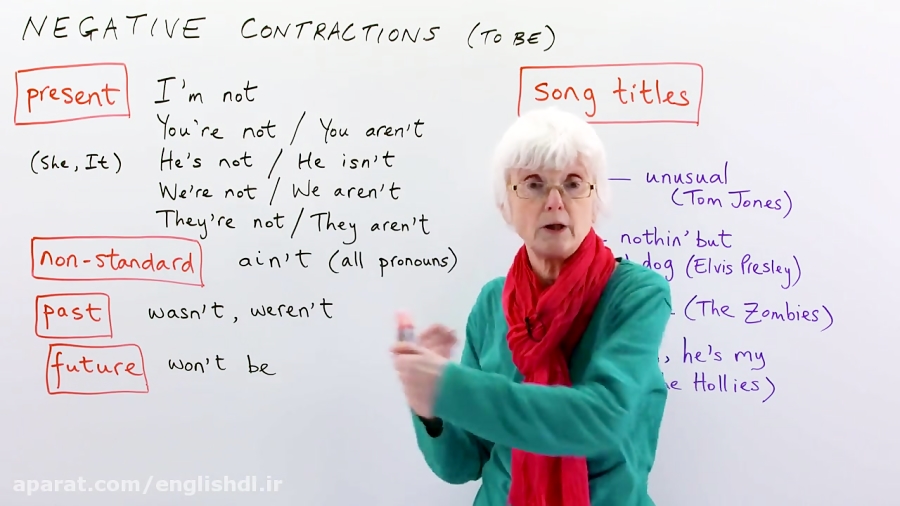 NEGATIVE CONTRACTIONS (TO BE)
present
I'm not
You're not / You aren't
(She, It) He's not / He isn't
We're not / We aren't
They're not / They aren't
non-standard ain't (all pronouns)
past wasn't, weren't
future won't be
song titles
— unusual
(Tom Jones)
nothin' but
dog (Elvis Presley)
(The Zombies)
, he's my
Hollies)
aparat.com/englishdl.ir